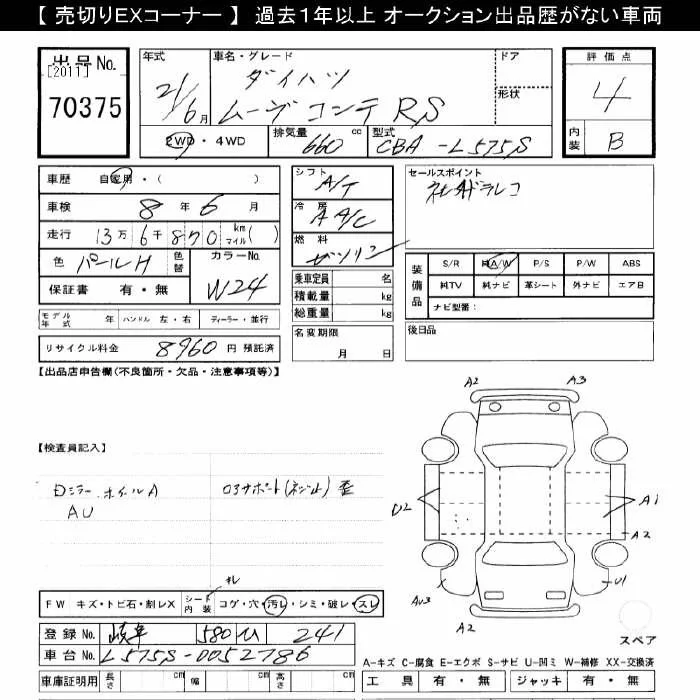 【 売切りEXコーナー 】 過去1年以上 オークション出品歴がない車両
出品 No. [2011] 70375
年式 21/6月
車名・グレード ダイハツ ムーヴ コンテ RS
ドア
形状
2WD・4WD
排気量 660 cc
型式 CBA-L575S
評価点 4
内装 B
車歴 自家用・( )
車検 8年 6月
走行 13万6千870 km マイル( )
色 パールH 色替
カラーNo. W24
保証書 有・無
シフト A/T
冷房 AAC
燃料 ガソリン
乗車定員 名
積載量 kg
総重量 kg
セールスポイント
装備品 S/R 純A/W P/S P/W ABS
純TV 純ナビ 革シート 外ナビ エアB
ナビ型番:
モデル年式 年 ハンドル 左・右 ディーラー・並行
名変期限 月 日
後日品
リサイクル料金 8960 円 預託済
【出品店申告欄(不良箇所・欠品・注意事項等)】
A2 A3
【検査員記入】
Dミラー.ホイルA
AU
U2 A1
A2
AU3 U1
A2
FW キズ・トビ石・割レX シート内装 コゲ・穴・汚レ・シミ・破レ・スレ
スペア
登録 No. 岐阜 580 ひ 241
車台 No. L575S-0052786
A-キズ C-腐食 E-エクボ S-サビ U-凹ミ W-補修 XX-交換済
車庫証明用 長さ cm 幅 cm 高さ cm
工具 有・無 ジャッキ 有・無